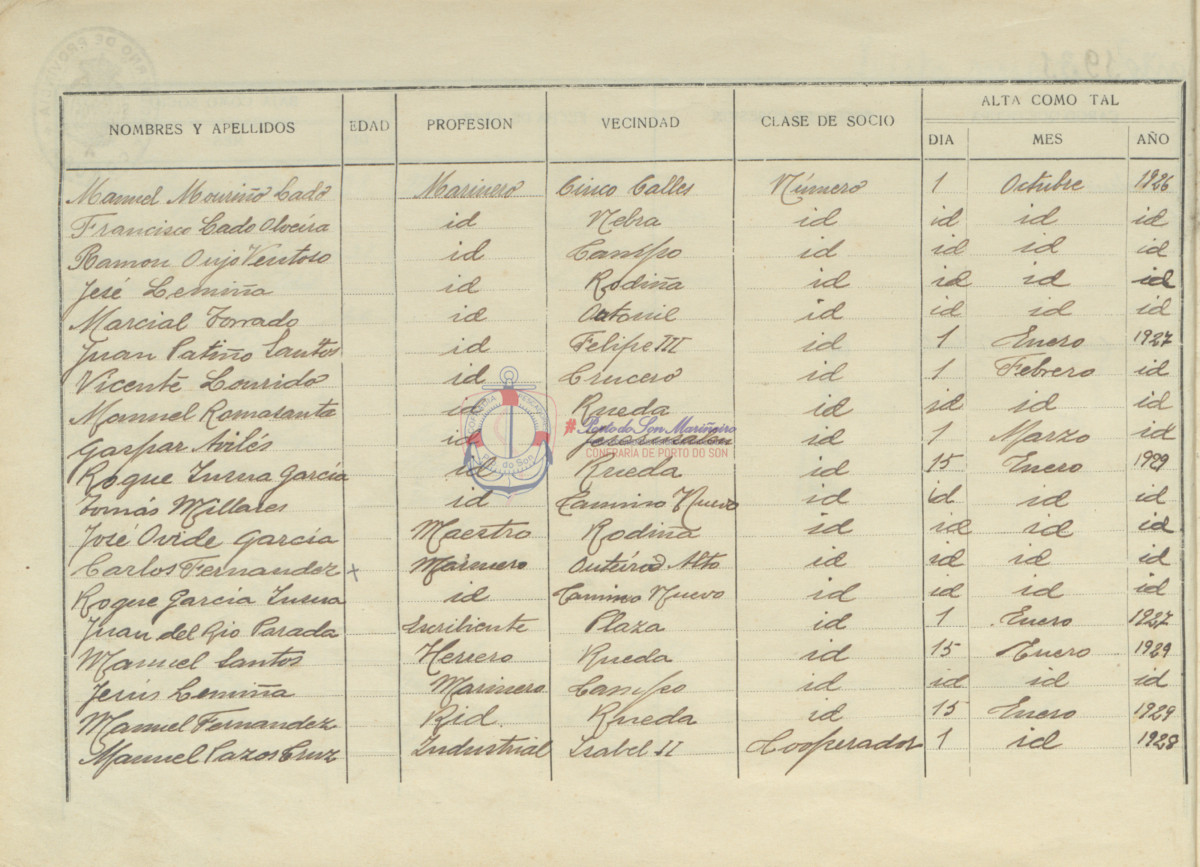 NOMBRES Y APELLIDOS EDAD PROFESION VECINDAD CLASE DE SOCIO ALTA COMO TAL
DIA MES AÑO
Manuel Mouriño Lado Marinero Cinco Calles Número 1 Octubre 1926
Francisco Lado Olveira id Nebra id id id id
Ramon Ventoso id Campo id id id id
José Lemiña id Rodiña id id id id
Marcial Torrado id id id id id
Juan Patiño Santos id Felipe III id 1 Enero 1927
Vicente Lourido id Crucero id 1 Febrero id
Manuel Romasanta id Rueda id id id id
Gaspar Avilés id Jerusalen id 1 Marzo id
Roque García id Rueda id 15 Enero 1929
Tomás Millares id Camino Nuevo id id id id
José Ovide García Maestro Rodiña id id id id
Carlos Fernandez x Marinero Alto id id id id
Roque García id Camino Nuevo id id id id
Juan del Rio Parada Escribiente Plaza id 1 Enero 1927
Manuel Santos Herrero Rueda id 15 Enero 1929
Jesús Lemiña Marinero Campo id id id id
Manuel Fernandez id. Rueda id 15 Enero 1929
Manuel Pazos Cruz Industrial Isabel II Cooperador 1 id 1928
#Porto do Son Mariñeiro
CONFRARÍA DE PORTO DO SON
Pto. do Son